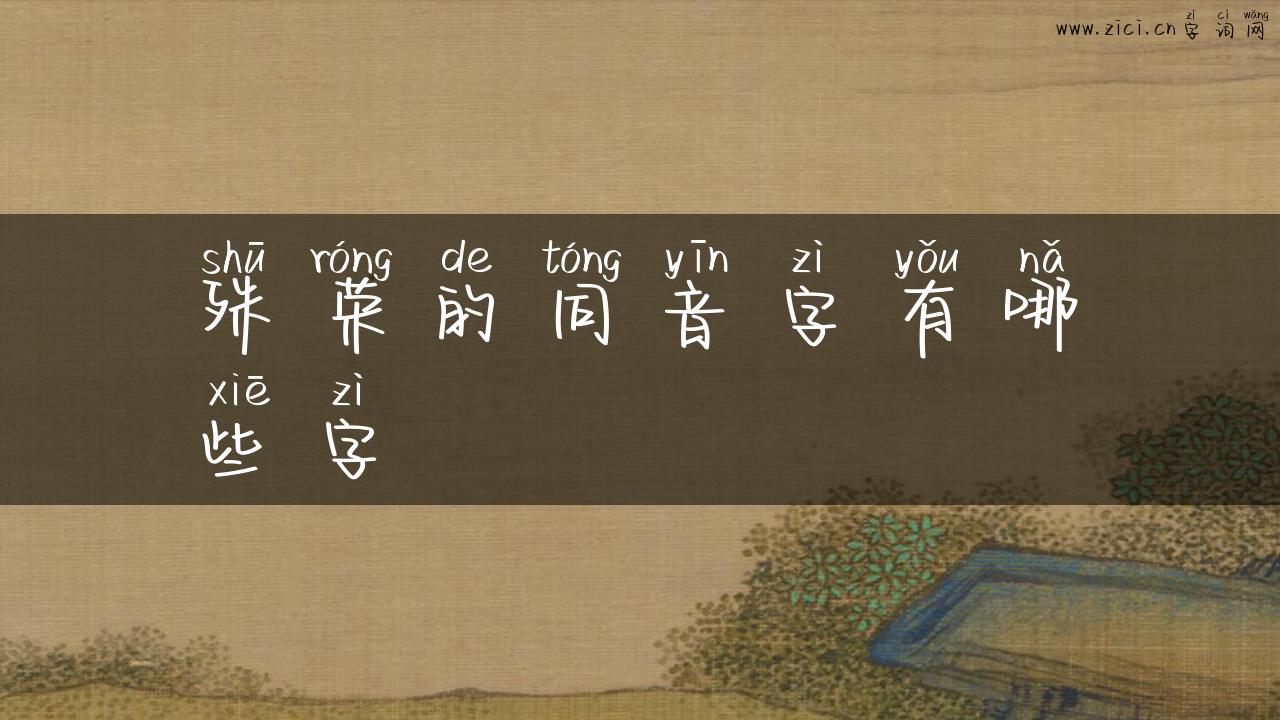 zì cí wǎng
www.zici.cn 字词网
shū róng de tóng yīn zì yǒu nǎ
殊荣的同音字有哪
xiē zì
些字